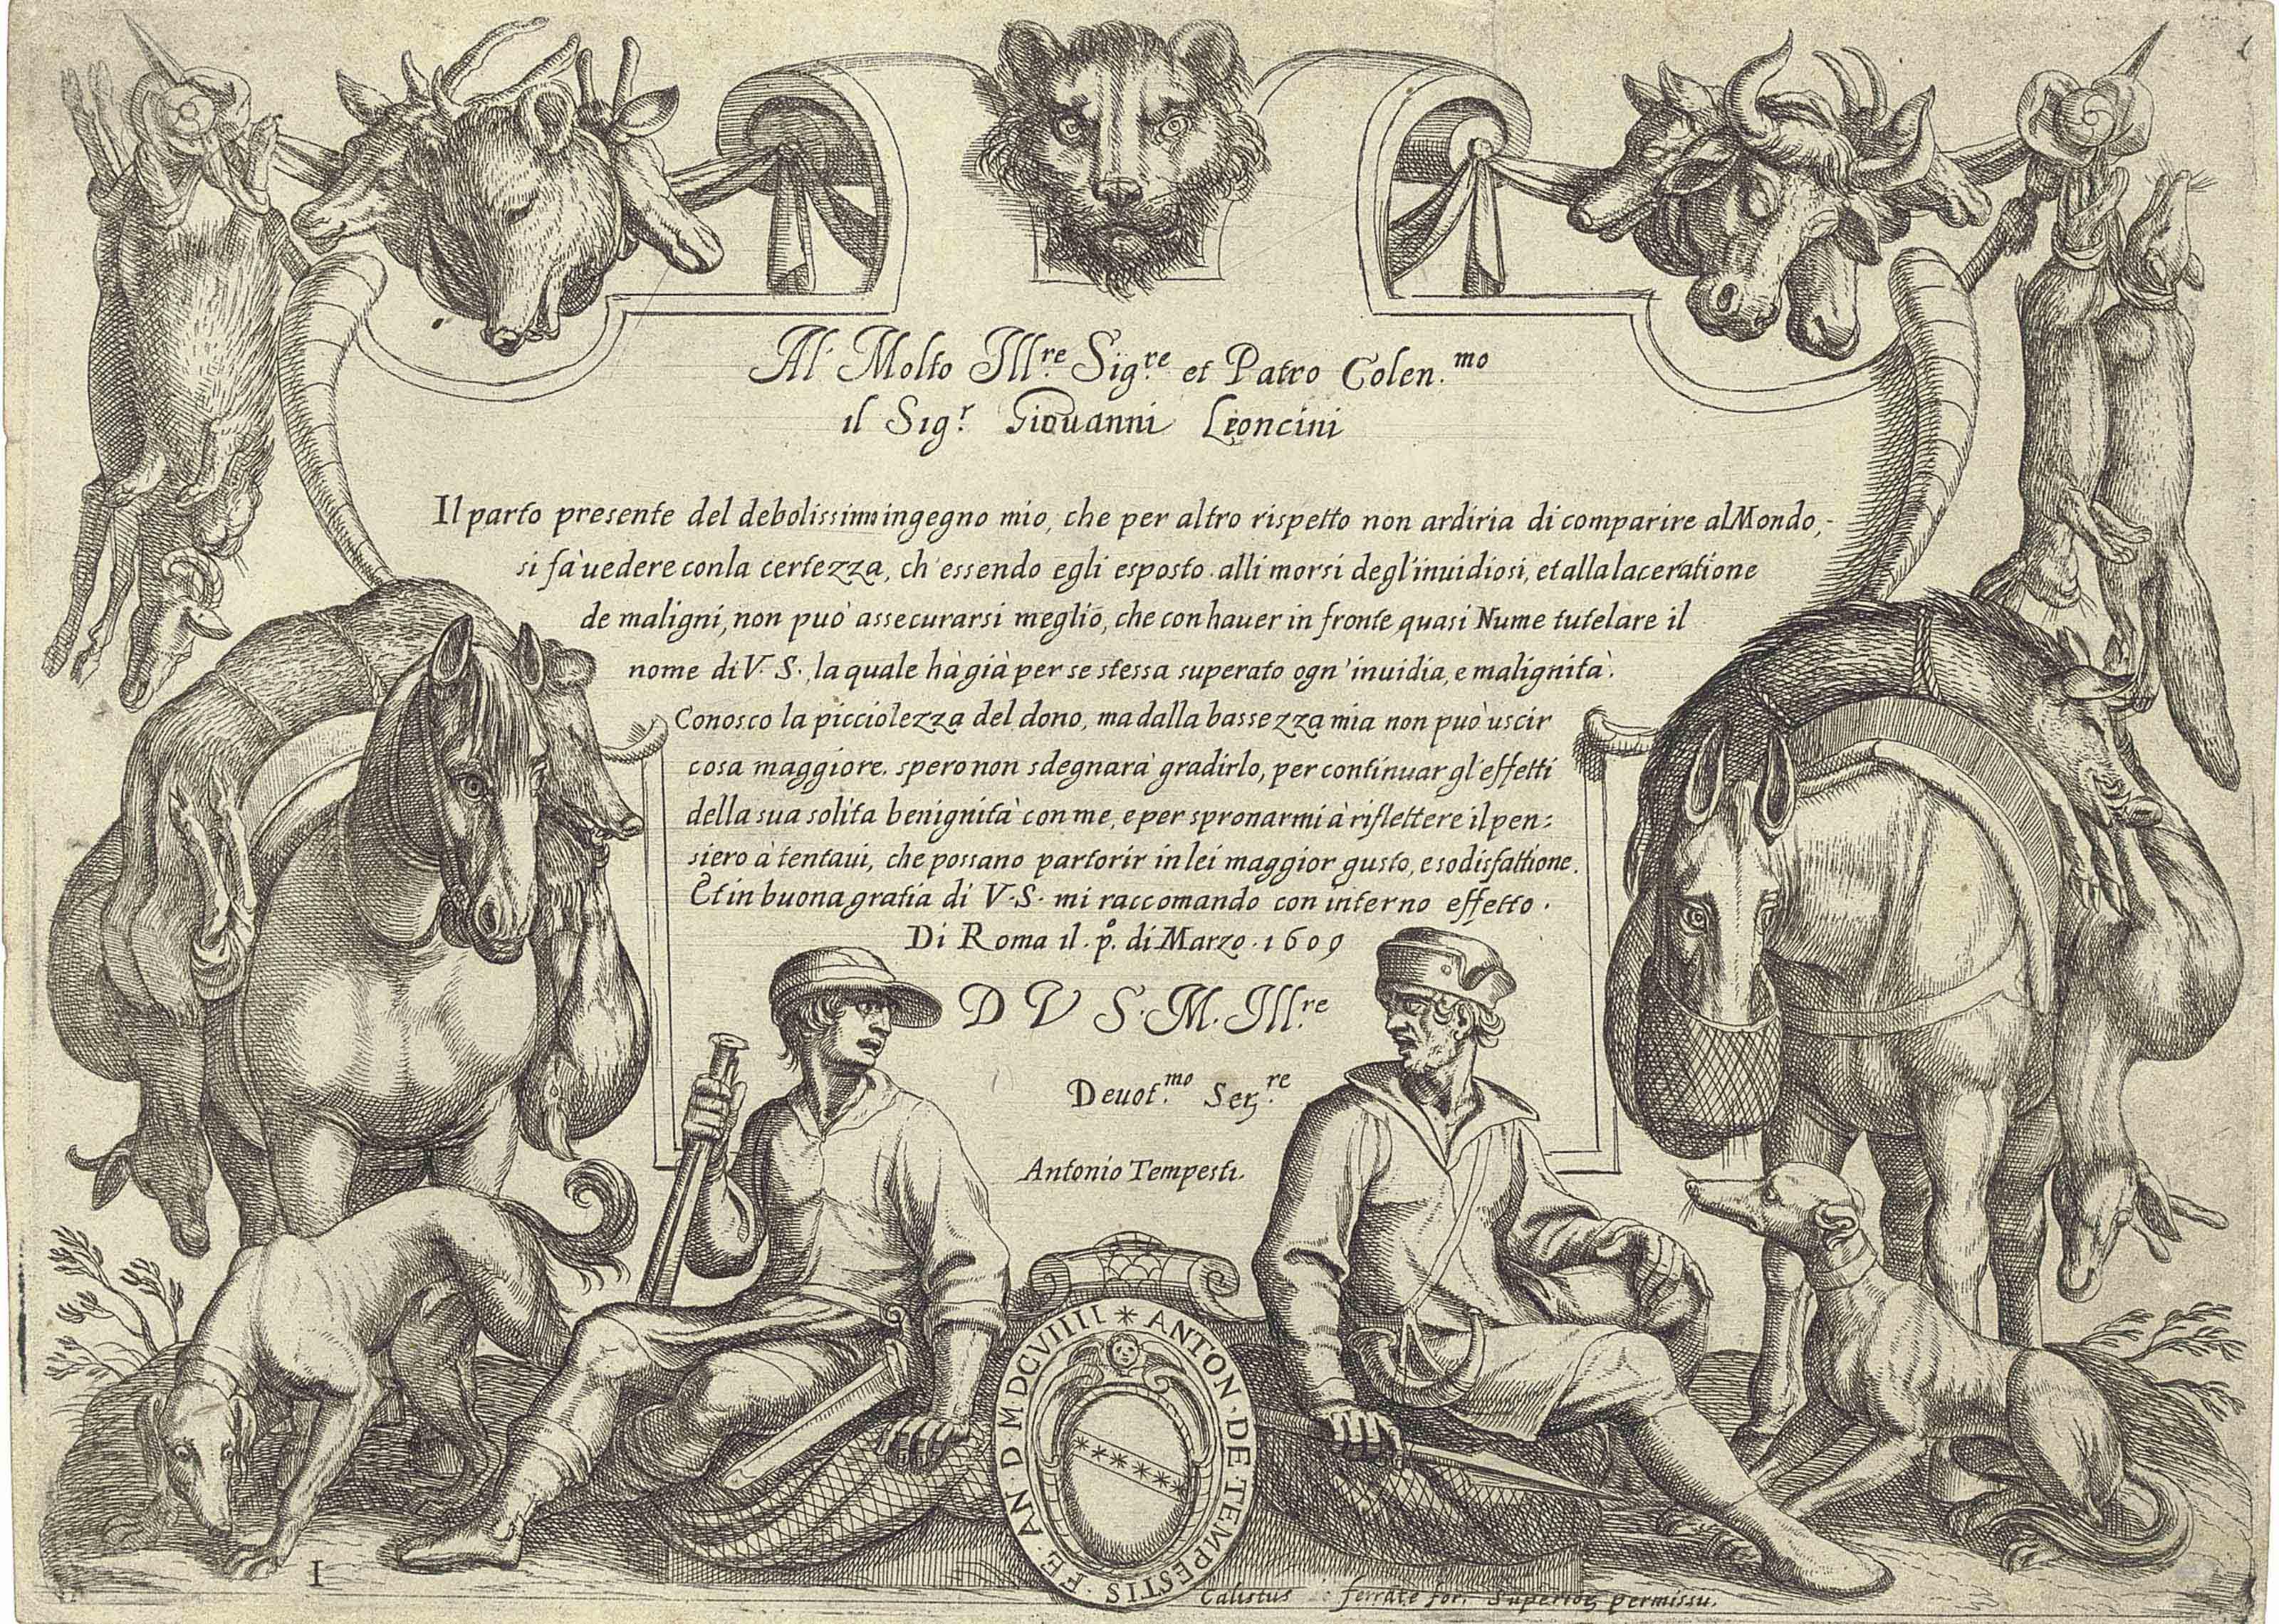 Al Molto Ill.re Sig.re et Patro Colen.mo
il Sig.r Giouanni Leoncini
Il parto presente del debolissimo ingegno mio, che per altro rispetto non ardiria di comparire al Mondo,
si fà uedere con la certezza, ch'essendo egli esposto alli morsi degl'inuidiosi, et alla laceratione
de maligni, non può assecurarsi meglio, che con hauer in fronte quasi Nume tutelare il
nome di V. S., la quale hà già per se stessa superato ogn'inuidia, e malignità.
Conosco la picciolezza del dono, ma dalla bassezza mia non può uscir
cosa maggiore. spero non sdegnarà gradirlo, per continuar gl'effetti
della sua solita benignità con me, e per spronarmi à riflettere il pen:
siero à tentaui, che possano partorir in lei maggior gusto, e sodisfattione.
Et in buona gratia di V. S. mi raccomando con interno effetto.
Di Roma il p.o di Marzo. 1609
D V S. M. Ill.re
Deuot.mo Ser.re
Antonio Tempesti.
ANTON · DE TEMPESTIS · FE · AN · D MDCVIIII *
1
Calistus ferrate for. Superior permissu.